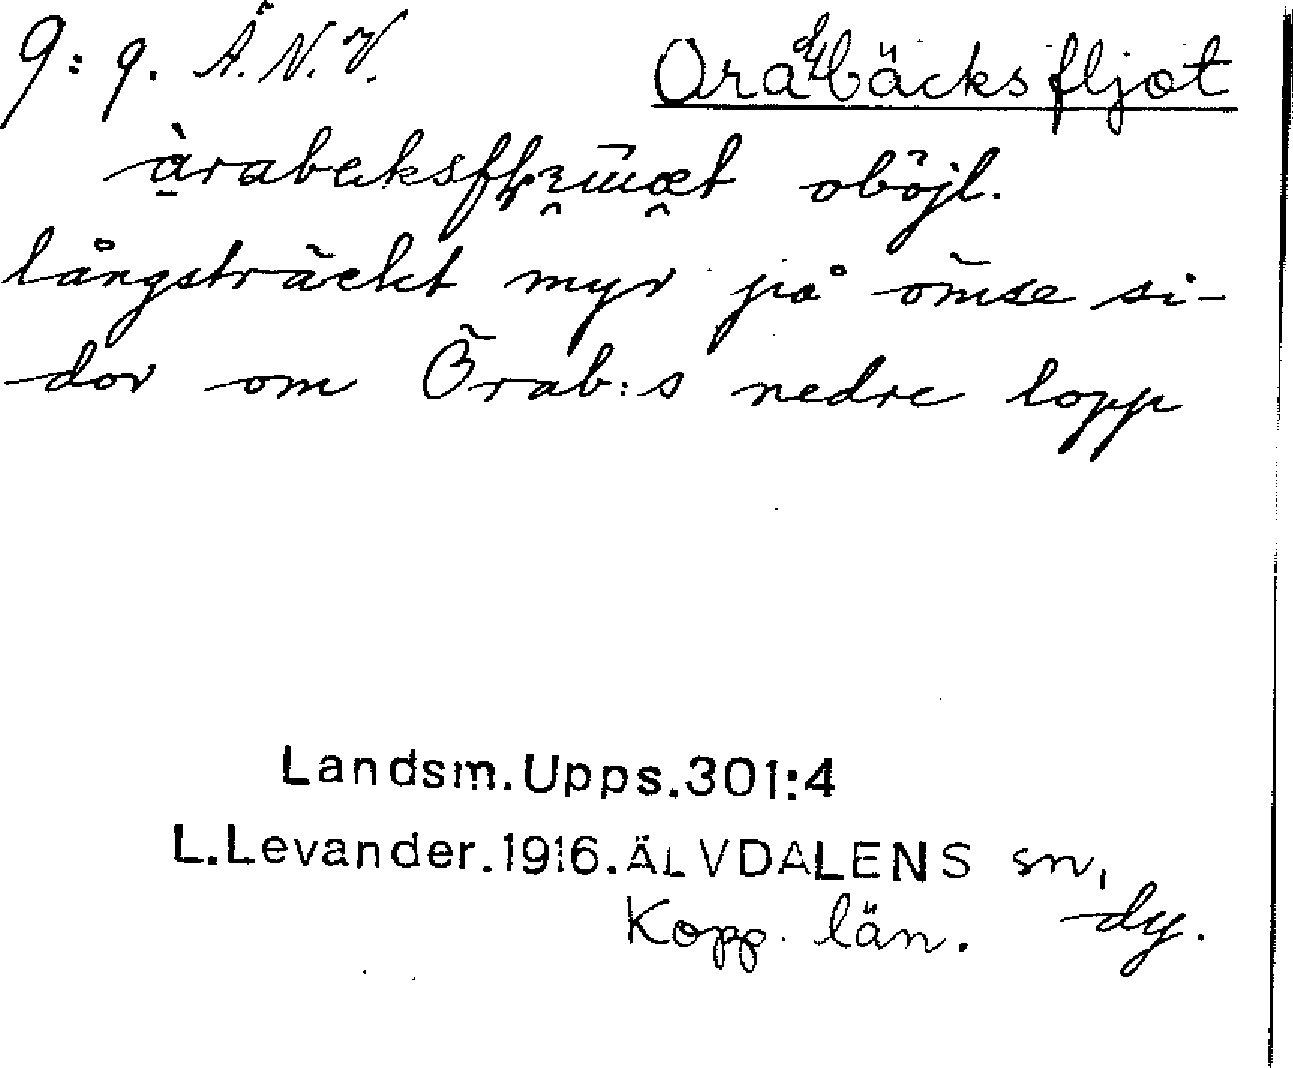 9:9. Ä.N.V. Oradbäcksfljot
oböjl.
långsträckt myr på ömse si-
dor om Örab:s nedre lopp
Landsm.Upps.301:4
L.Levander.1916.ÄLVDALENS sn,
Kopp. län. dy.